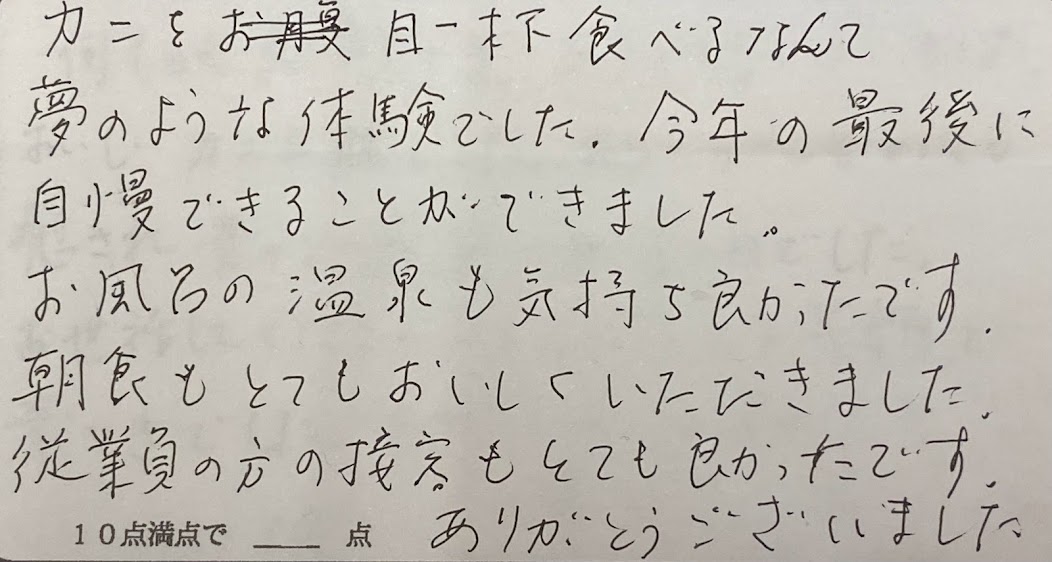 カニを目一杯食べるなんて
夢のような体験でした。今年の最後に
自慢できることができました。
お風呂の温泉も気持ち良かったです。
朝食もとてもおいしくいただきました。
従業員の方の接客もとても良かったです。
10点満点で ____ 点 ありがとうございました